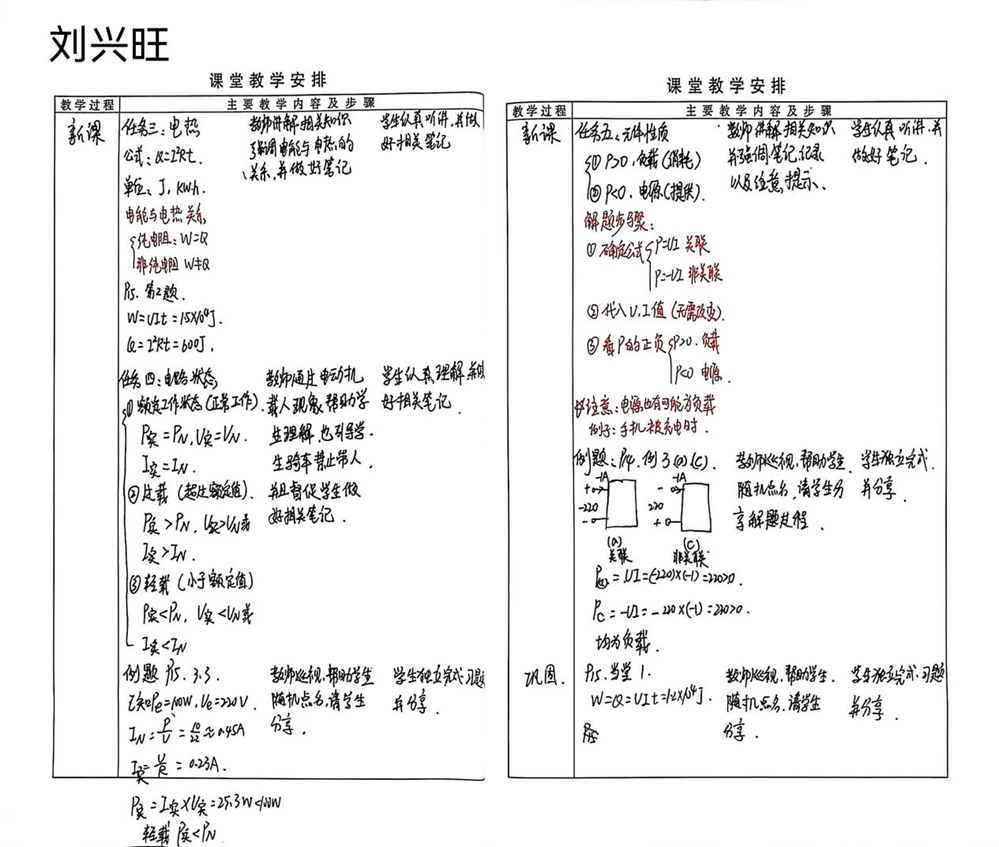 刘兴旺
课堂教学安排
教学过程 主要教学内容及步骤
新课 任务三:电热 教师讲解相关知识 学生认真听讲,并做
公式:Q=I²Rt. 强调电能与电热的 好相关笔记
单位:J,kW·h. 关系,并做好笔记
电能与电热关系
纯电阻:W=Q
非纯电阻 W≠Q
P15.第2题.
W=UIt=15×10⁴J.
Q=I²Rt=600J.
任务四:电路状态 教师通过电动机 学生认真理解并做
①额定工作状态(正常工作). 载人现象,帮助学 好相关笔记.
P实=PN,U实=UN. 生理解,也引导学.
I实=IN. 生骑车禁止带人.
②过载(超过额定值) 并且督促学生做
P实>PN,U实>UN或 好相关笔记.
I实>IN.
③轻载(小于额定值)
P实<PN,U实<UN或
I实<IN
例题 P15. 3.3 教师巡视,帮助学生 学生独立完成习题
已知Pe=100W,Ue=220V. 随机点名,请学生 并分享.
IN=P/U= ≈0.45A 分享.
I实= =0.23A.
P实=I实×U实=25.3W<100W
轻载 P实<PN
课堂教学安排
教学过程 主要教学内容及步骤
新课 任务五:元件性质 教师讲解相关知识 学生认真听讲,并
①P>0,负载(消耗) 并强调笔记记录 做好笔记.
②P<0,电源(提供). 以及注意提示.
解题步骤:
①确定公式 P=UI 关联
P=-UI 非关联
②代入U,I值(无需改变).
③看P的正负 P>0.负载
P<0 电源.
注意:电源也有可能为负载
例子:手机被充电时.
例题:P14.例3(a)(c). 教师巡视,帮助学生. 学生独立完成.
随机点名,请学生分 并分享.
享解题过程.
-1A -1A
+ -
-220 220
- +
(a) (c)
关联 非关联
P(a)=UI=(-220)×(-1)=220>0.
Pc=-UI=-220×(-1)=220>0.
均为负载.
巩固. P15.当堂1. 教师巡视,帮助学生. 学生独立完成习题
W=Q=UIt=12×10⁴J. 随机点名,请学生 并分享.
分享.